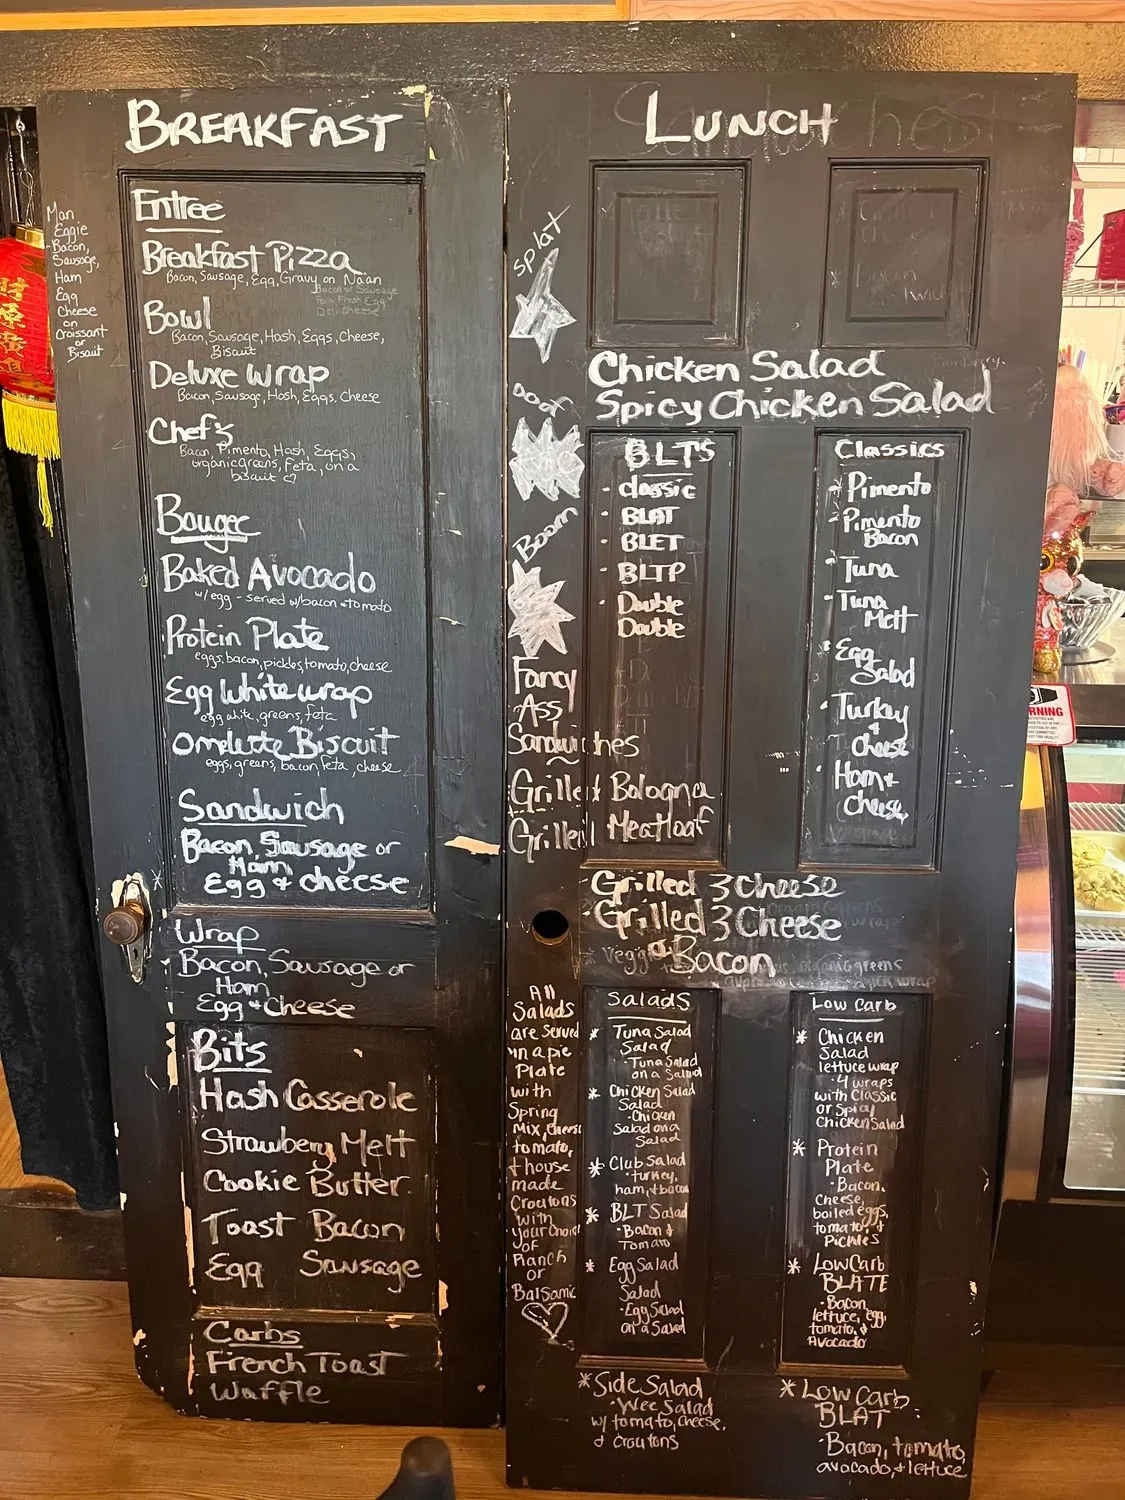 BREAKFAST
Man
Eggie
Bacon,
Sausage,
Ham
Egg
Cheese
on
Croissant
or
Biscuit
Entree
Breakfast Pizza
Bacon, Sausage, Egg, Gravy on Naan
Bowl
Bacon, Sausage, Hash, Eggs, Cheese,
Biscuit
Deluxe Wrap
Bacon, Sausage, Hash, Eggs, Cheese
Chef's
Bacon, Pimento, Hash, Eggs,
organic greens, Feta, on a
biscuit
Bougee
Baked Avocado
w/egg - served w/bacon + tomato
Protein Plate
eggs, bacon, pickles, tomato, cheese
Egg White wrap
egg white, greens, feta
Omelette Biscuit
eggs, greens, bacon, feta, cheese
Sandwich
Bacon, Sausage or
Ham
Egg + cheese
Wrap
Bacon, Sausage or
Ham
Egg + Cheese
Bits
Hash Casserole
Strawberry Melt
Cookie Butter
Toast Bacon
Egg Sausage
Carbs
French Toast
Waffle
LUNCH
splat
Boom
Chicken Salad
Spicy Chicken Salad
BLT's
- classic
- BLAT
- BLET
- BLTP
- Double
Double
Classics
- Pimento
- Pimento
Bacon
- Tuna
- Tuna
Melt
- Egg
Salad
- Turkey
+
cheese
- Ham +
cheese
Fancy
Ass
Sandwiches
Grilled Bologna
Grilled Meatloaf
- Grilled 3 Cheese
- Grilled 3 Cheese
Bacon
All
Salads
are served
in a pie
Plate
with
Spring
Mix, cheese
tomato,
+ house
made
Croutons
with
your choice
of
Ranch
or
Balsamic
Salads
* Tuna Salad
Salad
· Tuna Salad
on a Salad
* Chicken Salad
Salad
· Chicken
Salad on a
Salad
* Club Salad
· turkey,
ham, + bacon
* BLT Salad
· Bacon +
Tomato
* Egg Salad
Salad
· Egg Salad
on a Salad
* Side Salad
· Wee Salad
w/ tomato, cheese,
+ croutons
Low Carb
* Chicken
Salad
lettuce wrap
· 4 wraps
with Classic
or Spicy
Chicken Salad
* Protein
Plate
· Bacon,
cheese,
boiled eggs,
tomato, +
Pickles
* Low Carb
BLATE
· Bacon,
lettuce, egg,
tomato, +
Avocado
* Low Carb
BLAT
· Bacon, tomato,
avocado, + lettuce